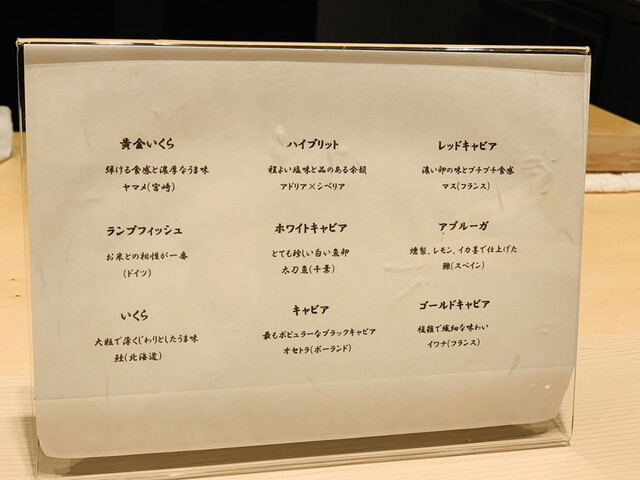 黄金いくら
弾ける食感と濃厚なうま味
ヤマメ(宮崎)
ハイブリット
程よい塩味と品のある余韻
アドリア×シベリア
レッドキャビア
濃い卵の味とプチプチ食感
マス(フランス)
ランプフィッシュ
お米との相性が一番
(ドイツ)
ホワイトキャビア
とても珍しい白い魚卵
太刀魚(千葉)
アブルーガ
燻製、レモン、イカ墨で仕上げた
鰊(スペイン)
いくら
大粒で薄くじわりとしたうま味
鮭(北海道)
キャビア
最もポピュラーなブラックキャビア
オセトラ(ポーランド)
ゴールドキャビア
複雑で繊細な味わい
イワナ(フランス)